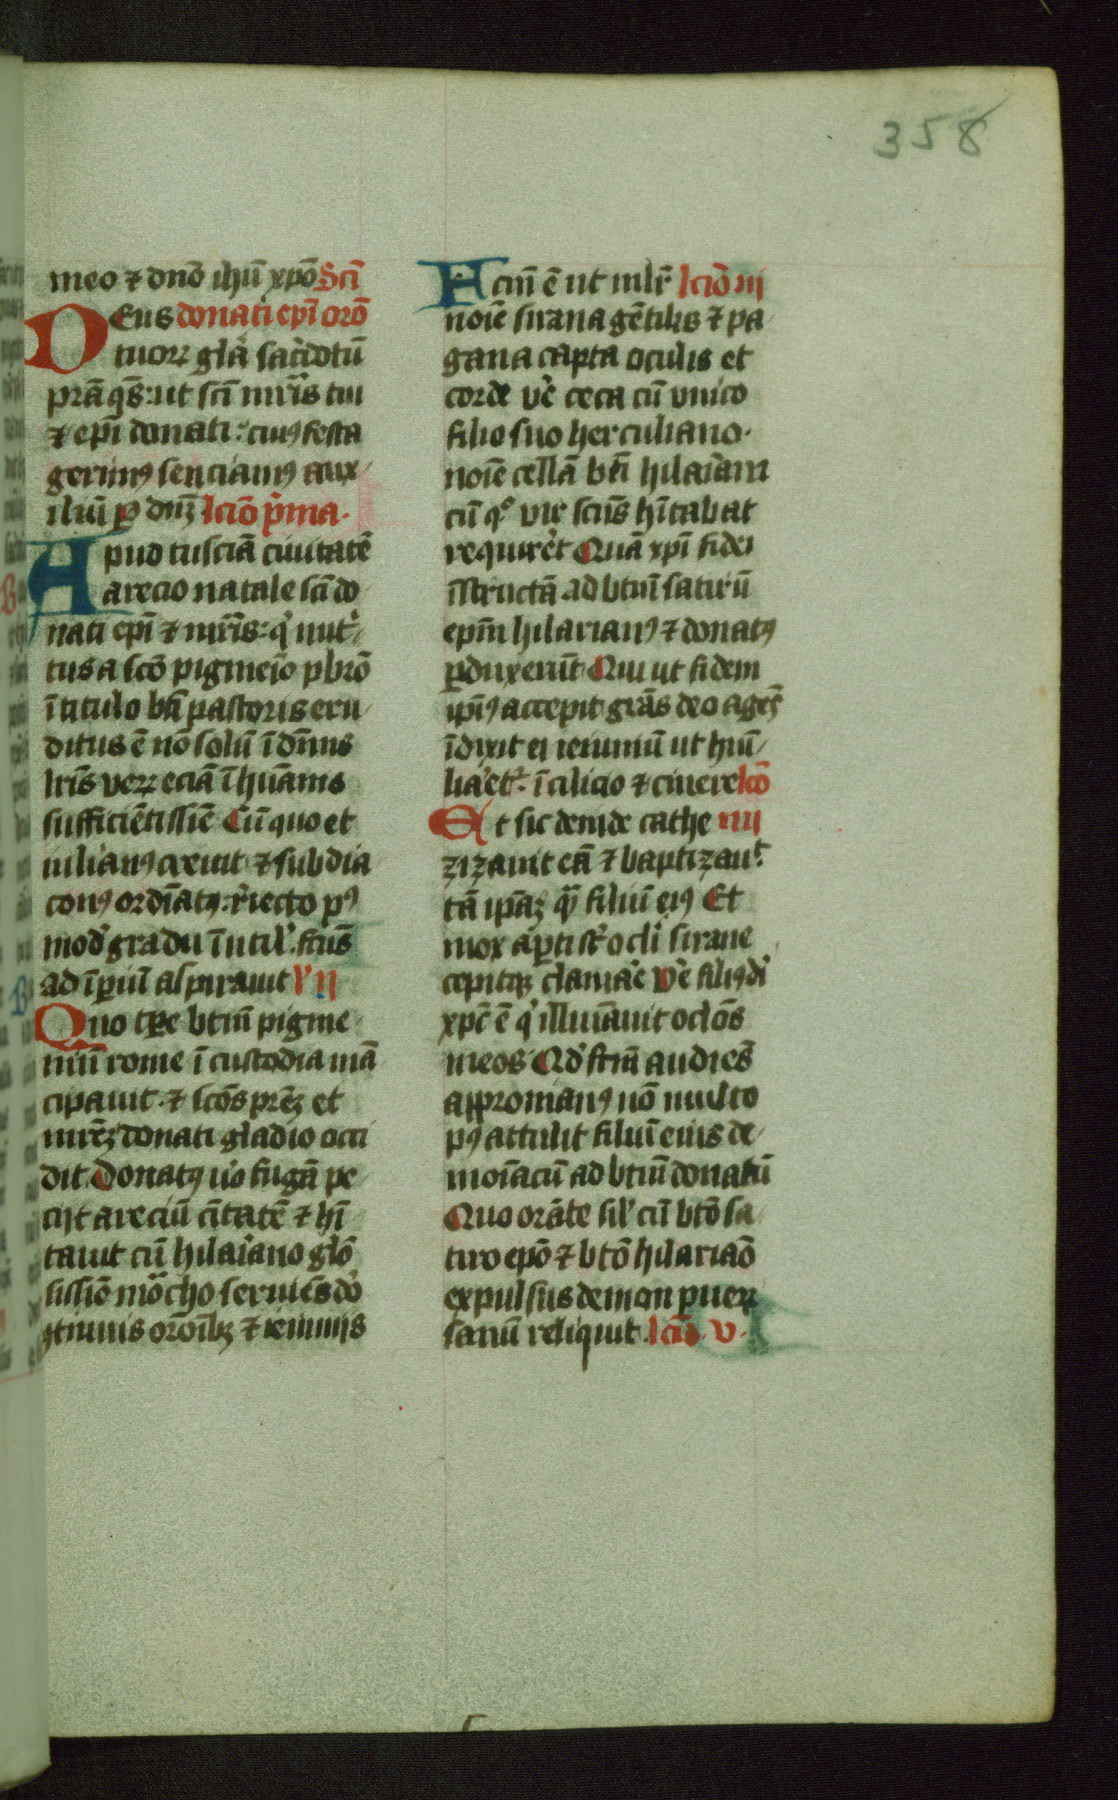 358
meo ⁊ dnō ihū xpō Scī
DEus donati epī orō
tuoꝝ gla sacdotū
prā qs̄: ut scī mr̄is tui
⁊ epī donati: cuiꝰ festa
gerimꝰ senciamꝰ aux
iliū ꝑ dnꝫ lcīo pͥma·
Apud tusciā ciuitatē
arecio natale scī do
nati epī ⁊ mr̄is: qͥ nut
tus a scō pigmeīo pbrō
ī titulo btī pastoris eru
ditus ē nō solū ī dīnis
lrīs veꝝ eciā ī huānis
sufficiētissīe Cū quo et
iulianꝰ creuit ⁊ subdia
conꝰ ordīatꝰ: rͥiecto pꝰ
modͫ gradu īutil'r frūs̄
ad īꝑiū aspirauit l' ij
Quo tꝑe btm̄ pigme
niū rome ī custodia mā
cipauit· ⁊ scōs pr̄eꝫ et
mr̄eꝫ donati gladio occi
dit· Donatꝰ uͦo fugā pe
cijt areciū cītatē ⁊ hī
tauit cū hilaīano glō
sissīo mōcho seruiēs dō
gtinuis orōnibꝫ ⁊ ieiunijs
Fctm̄ ē ut mlr̄ lcīo iij
noīe sirana gētilis ⁊ pa
gana capta oculis et
corde vͦe ceca cū vnico
filio suo herculiano·
noīe cellā btī hilaīani
cū qͦ vir scūs hītabat
requirēt Quā xpī fidei
īstructā ad btm̄ satirū
epm̄ hilarianꝰ ⁊ donatꝰ
ꝑduxerūt Qui ut fidem
ipīꝰ accepit gr̄as deo agēs
īdixit ei ieiuniū ut hūi
liaͬetͬ· ī cilicio ⁊ cinere lcō
Et sic deinde cathe iiij
zizauit eā ⁊ baptizauͭ
tā ipāꝫ qͣꝫ filiū eiꝰ Et
mox apti st' ocli sirane
cepitqꝫ clamaͬe Vͤe filiꝰ di
xpc̄ ē qͥ illuīauit oclōs
meos Qd' frm̄ audies̄
appronianꝰ nō multo
pꝰ attulit filiū eius de
moīacū ad btm̄ donatū
Quo orāte sil' cū btō sa
tiro epō ⁊ btō hilariaō
expulsus demon pueꝝ
sanū reliquit· lcīo· v·